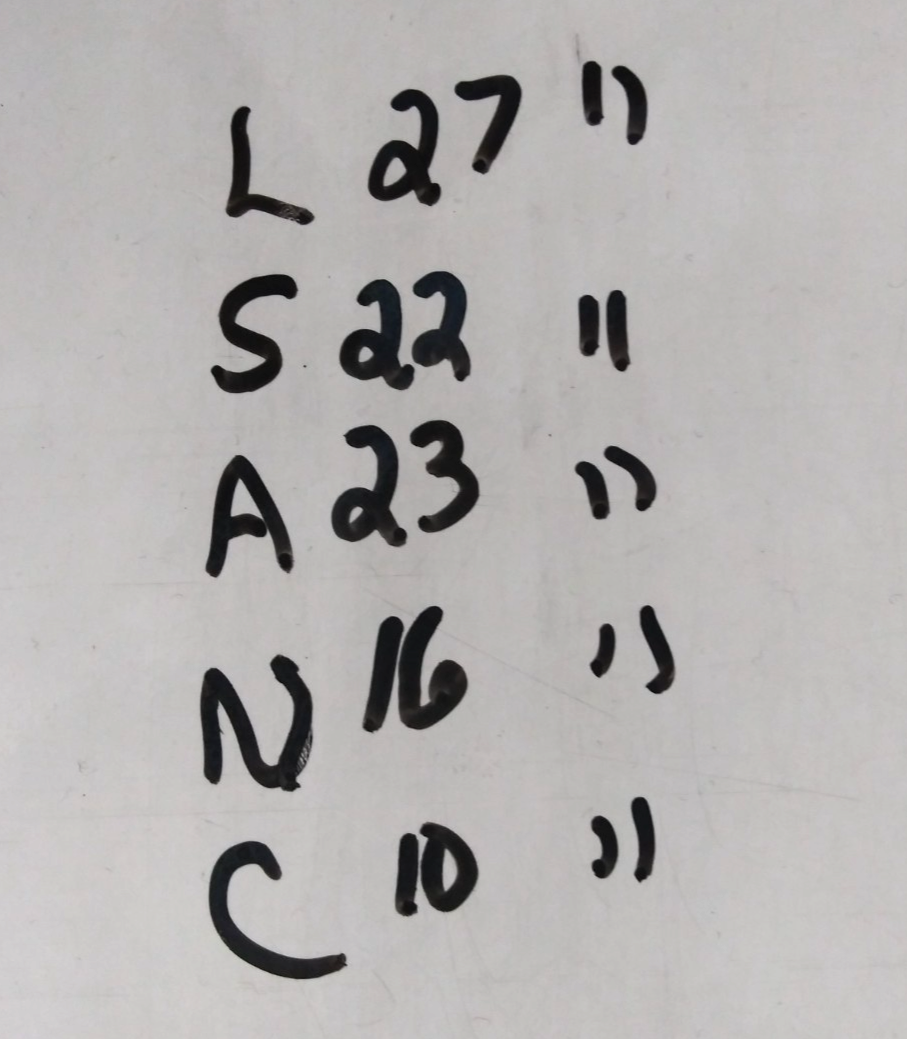 L 27 "
S 22 "
A 23 "
N 16 "
C 10 "